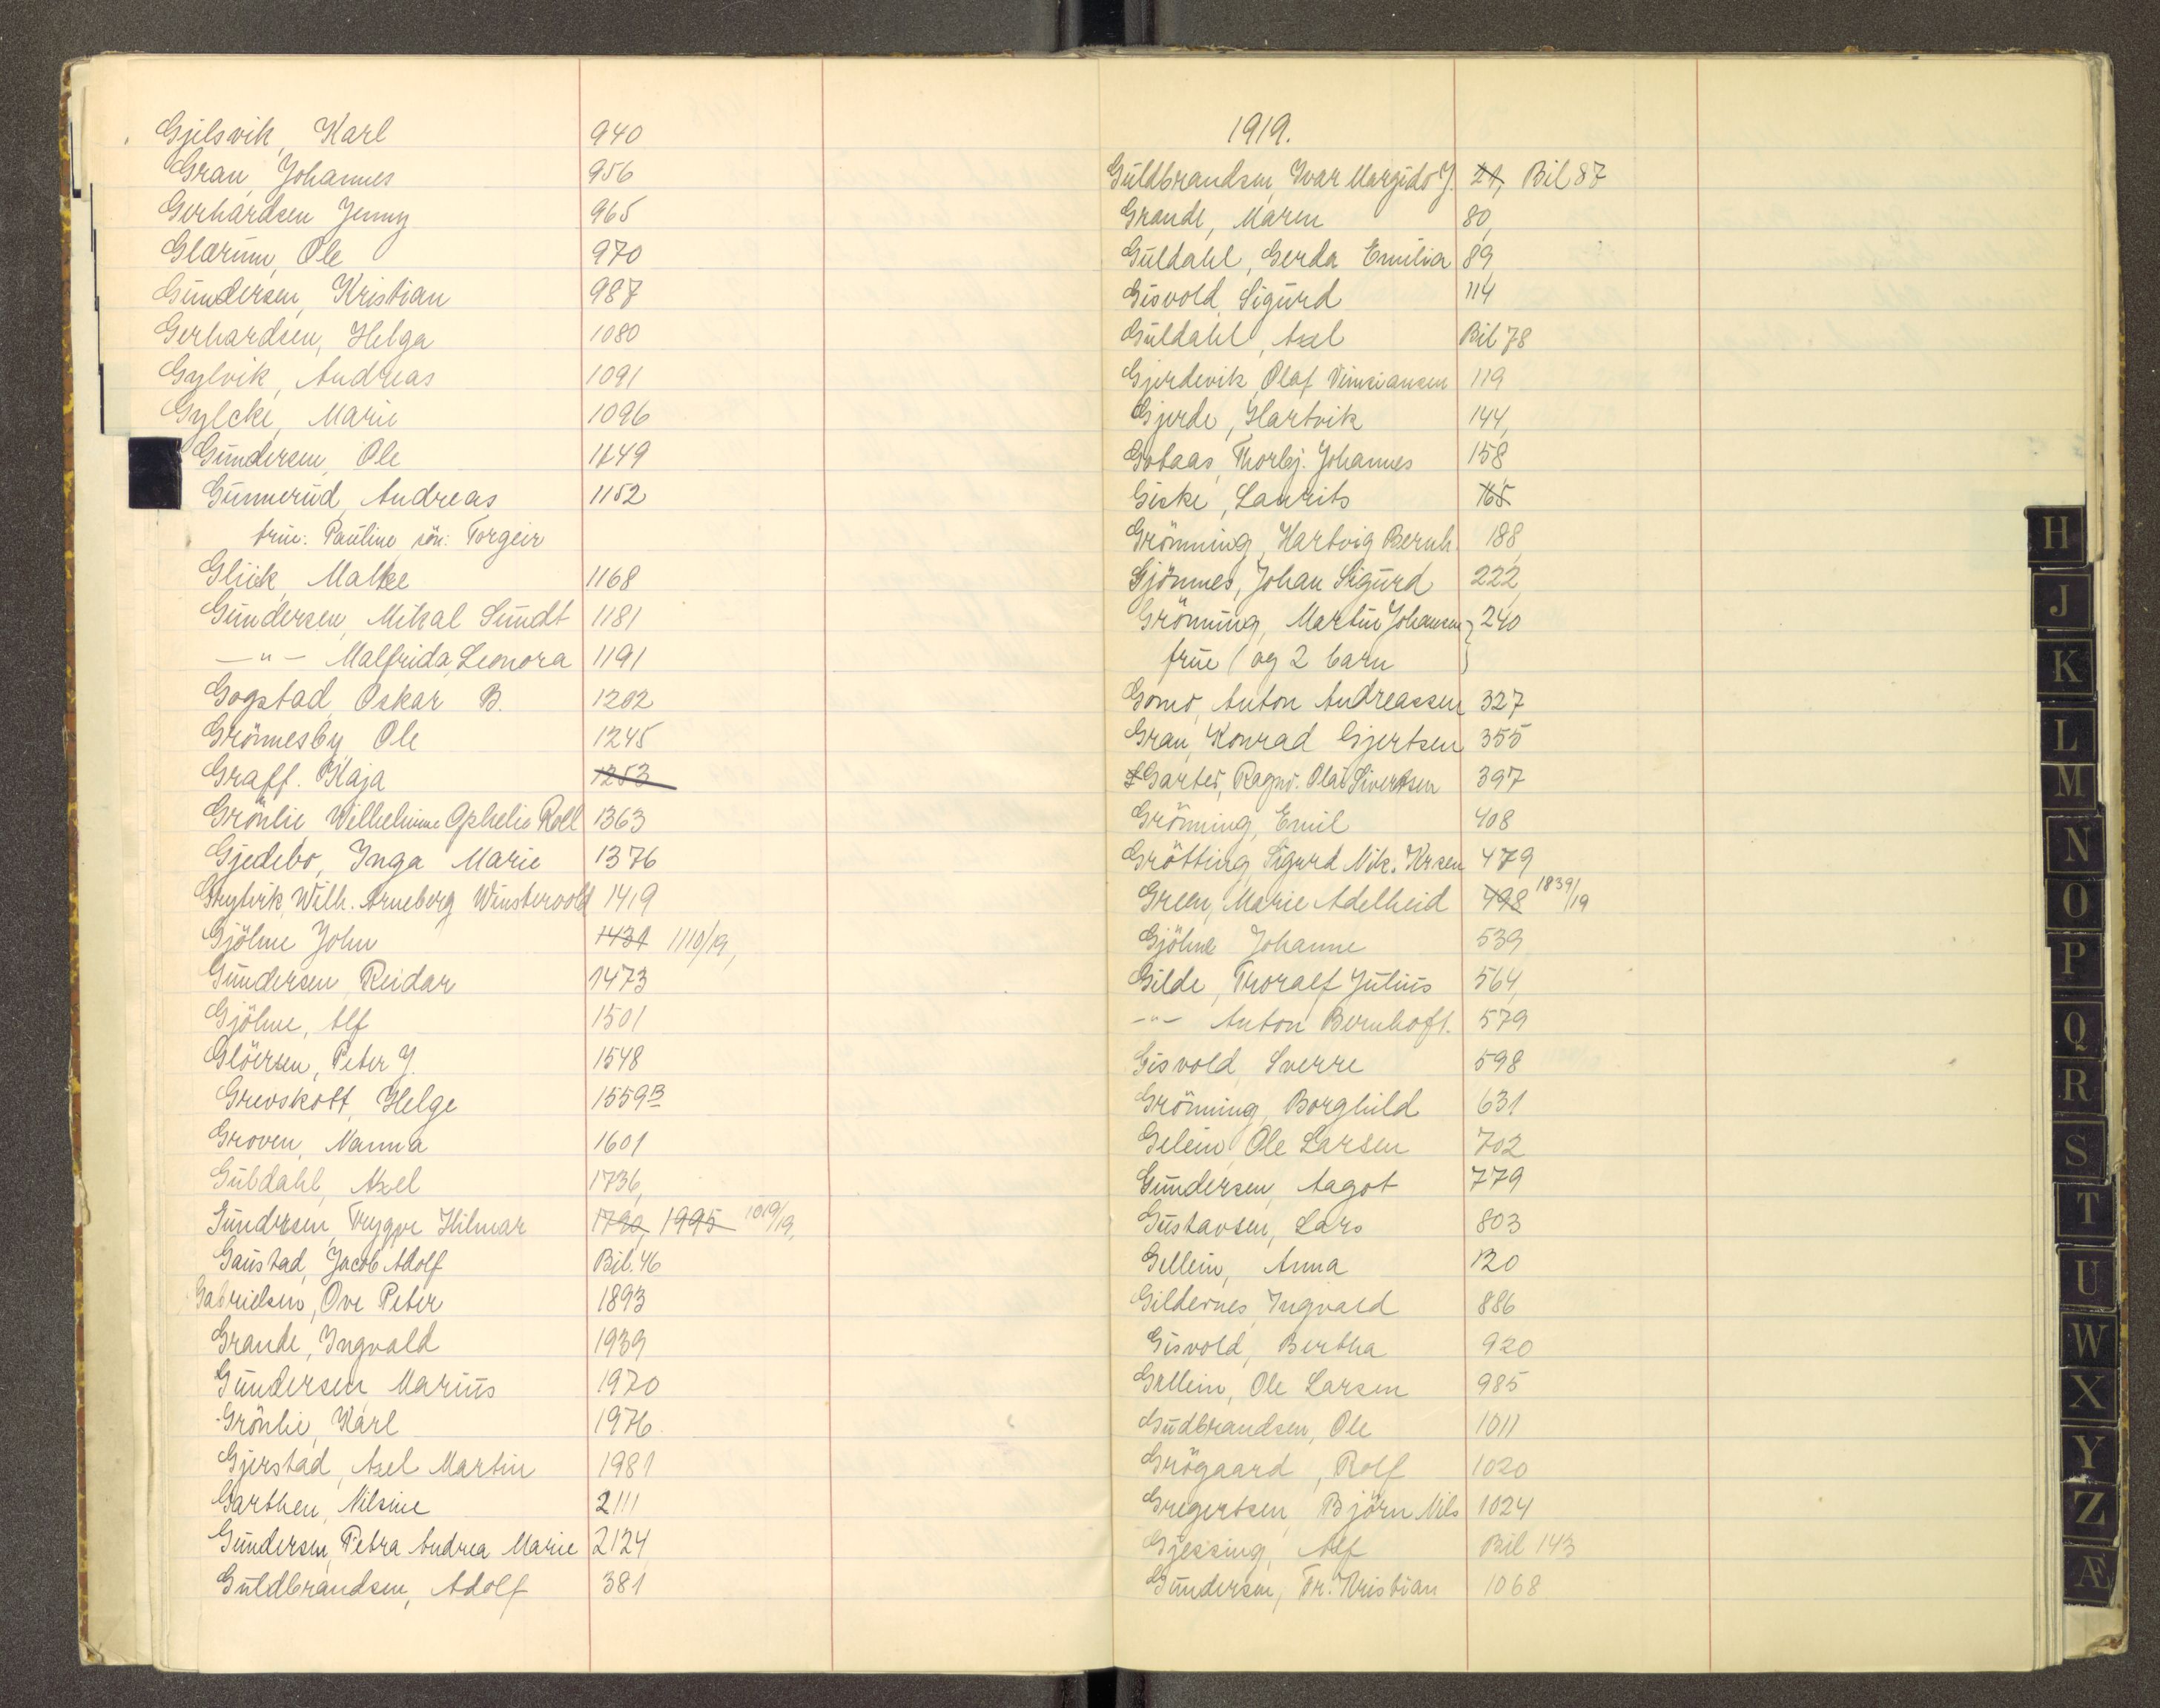 Gjelsvik, Karl 940
Gran, Johannes 956
Gerhardsen Jenny 965
Glærum, Ole 970
Gundersen, Kristian 987
Gerhardsen, Helga 1080
Gylvik, Andreas 1091
Gylcke, Marie 1096
Gundersen, Ole 1149
Gunnerud, Andreas 1152
frue: Pauline, sön: Torgeir
Glück, Malke 1168
Gundersen, Mikal Sundt 1181
—"— Malfrida, Leonora 1191
Gogstad, Oskar B. 1202
Grönnesby, Ole 1245
Graff. Kaja 1253
Grönlie, Wilhelmine Ophelie Roll 1363
Gjedebo, Inga Marie 1376
Wilh. Arneberg 1419
Gjölme John 1431 1110/19,
Gundersen, Reidar 1473
Gjölme, Alf 1501
Glöersen, Peter J. 1548
Grevskott, Helge 1559B
Groven, Nanna 1601
Guldahl, Axel 1736,
Gundersen, Trygve Hilmar 1790, 1995 1019/19,
Gaustad, Jacob Adolf Bil. 46
Gabrielsen, Ove Peter 1893
Grande, Ingvald 1939
Gundersen, Marius 1970
Grönlie, Karl 1976
Gjerstad, Axel Martin 1981
Garthen, Nilsine 2111
Gundersen, Petra Andrea Marie 2124
Guldbrandsen, Adolf 381
1919.
Guldbrandsen, Ivar Margido J. 21, Bil 87
Grande, Maren 80,
Guldahl, Gerda Emilia 89,
Gisvold, Sigurd 114
Guldahl, Axel Bil 78
Gjerdevik, Olaf 119
Gjerde, Hartvik 144,
Gotaas, Thorbj. Johannes 158
Giske, Laurits 165
Grönning, Hartvig Bernh. 188,
Gjönnes, Johan Sigurd 222,
Grönning, Martin Johansen } 240
frue (og 2 barn }
Gomo, Anton Andreassen 327
Gran, Konrad Gjertsen 355
Garter, Ragnv. Olai Sivertsen 397
Grönning, Emil 408
Grötting, Sigurd Nik. Krsen 479
Green, Marie Adelheid 498 1839/19
Gjölme Johanne 539
Gilde, Thoralf Julius 564,
—"— Anton Bernhoft. 579
Gisvold Sverre 598
Grönning, Borghild 631
Gelein, Ole Larsen 702
Gundersen, Aagot 779
Gustavsen, Lars 803
Gellein, Anna
Gildernes, Ingvald 886
Gisvold, Bertha 920
Gellein, Ole Larsen 985
Gudbrandsen, Ole 1011
Grögaard, Rolf 1020
Gregertsen, Björn Nils 1024
Gjessing, Alf Bil 143
Gundersen, Fr. Kristian 1068
H
J
K
L
M
N
O
P
Q
R
S
T
U
W
X
Y
Z
Æ